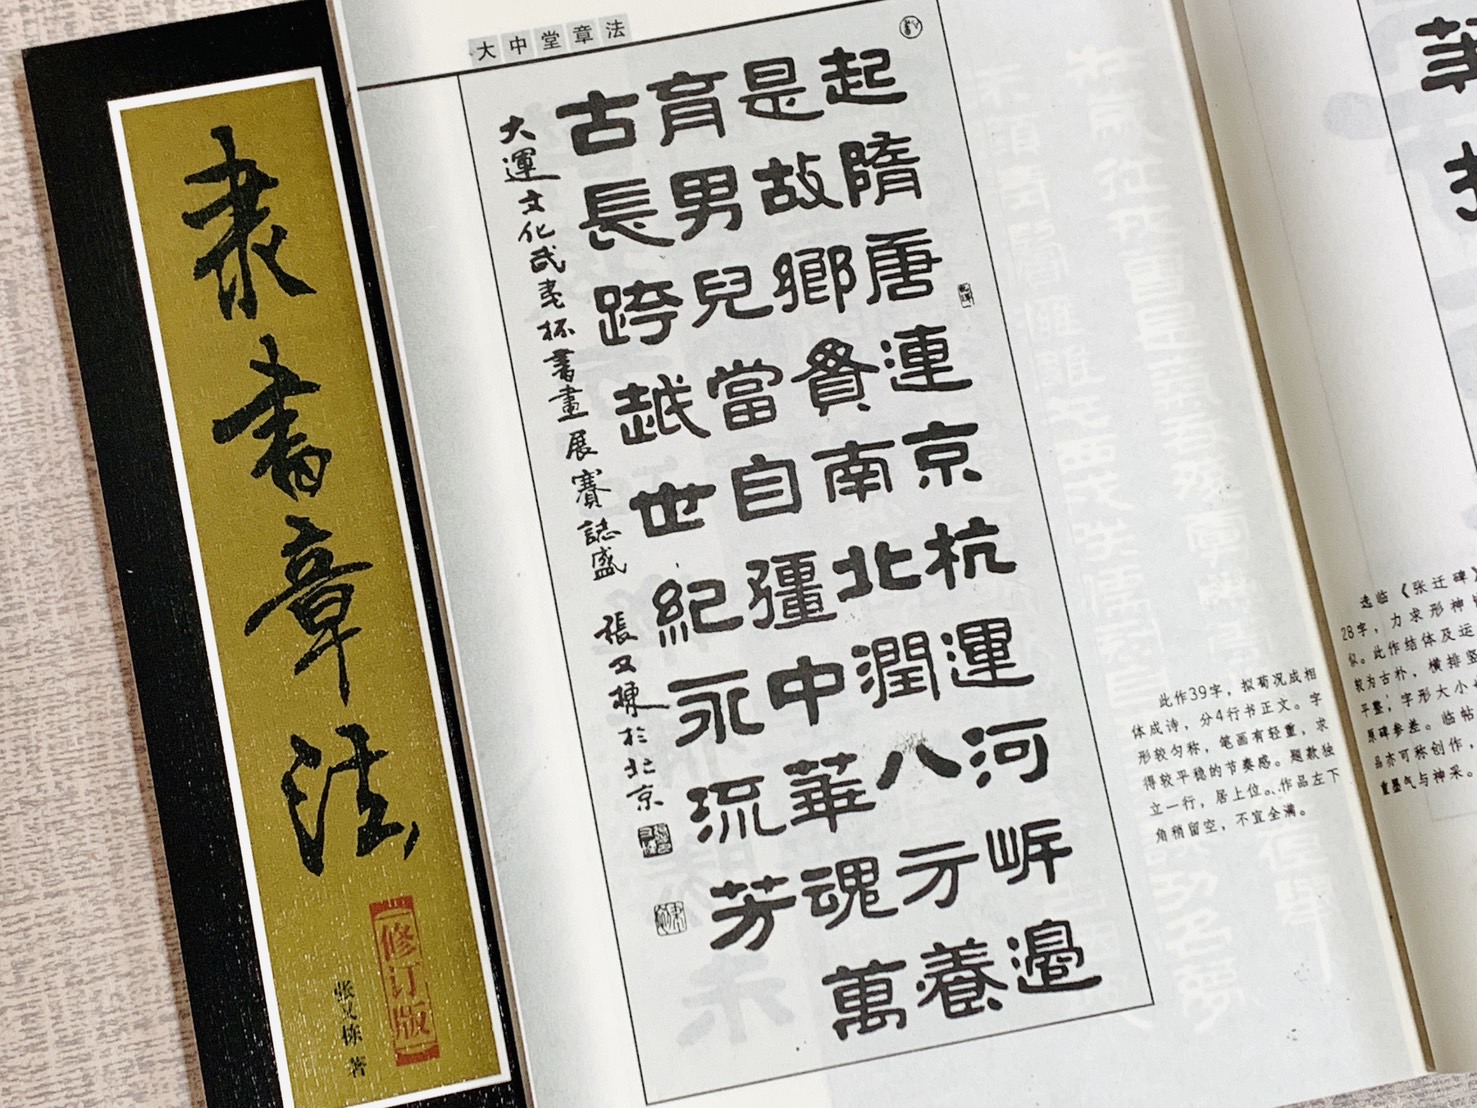 隶書章法
修订版
张又栋 著
大中堂章法
起隋唐連京杭運河岸邊
是故鄉貫南北潤八方養
育男兒當自彊中華魂萬
古長跨越世紀永流芳
大運文化武夷杯書畫展賽誌盛 張又棟於北京
此作39字，拟荀况成相
体成诗，分4行书正文。字
形较匀称，笔画有轻重，求
得较平稳的节奏感。题款独
立一行，居上位。作品左下
角稍留空，不宜全满。
选临《张迁碑》
28字，力求形神
似。此作结体及运
较为古朴，横排竖
平整，字形大小
原碑参差。临帖
品亦可称创作，
重墨气与神采。